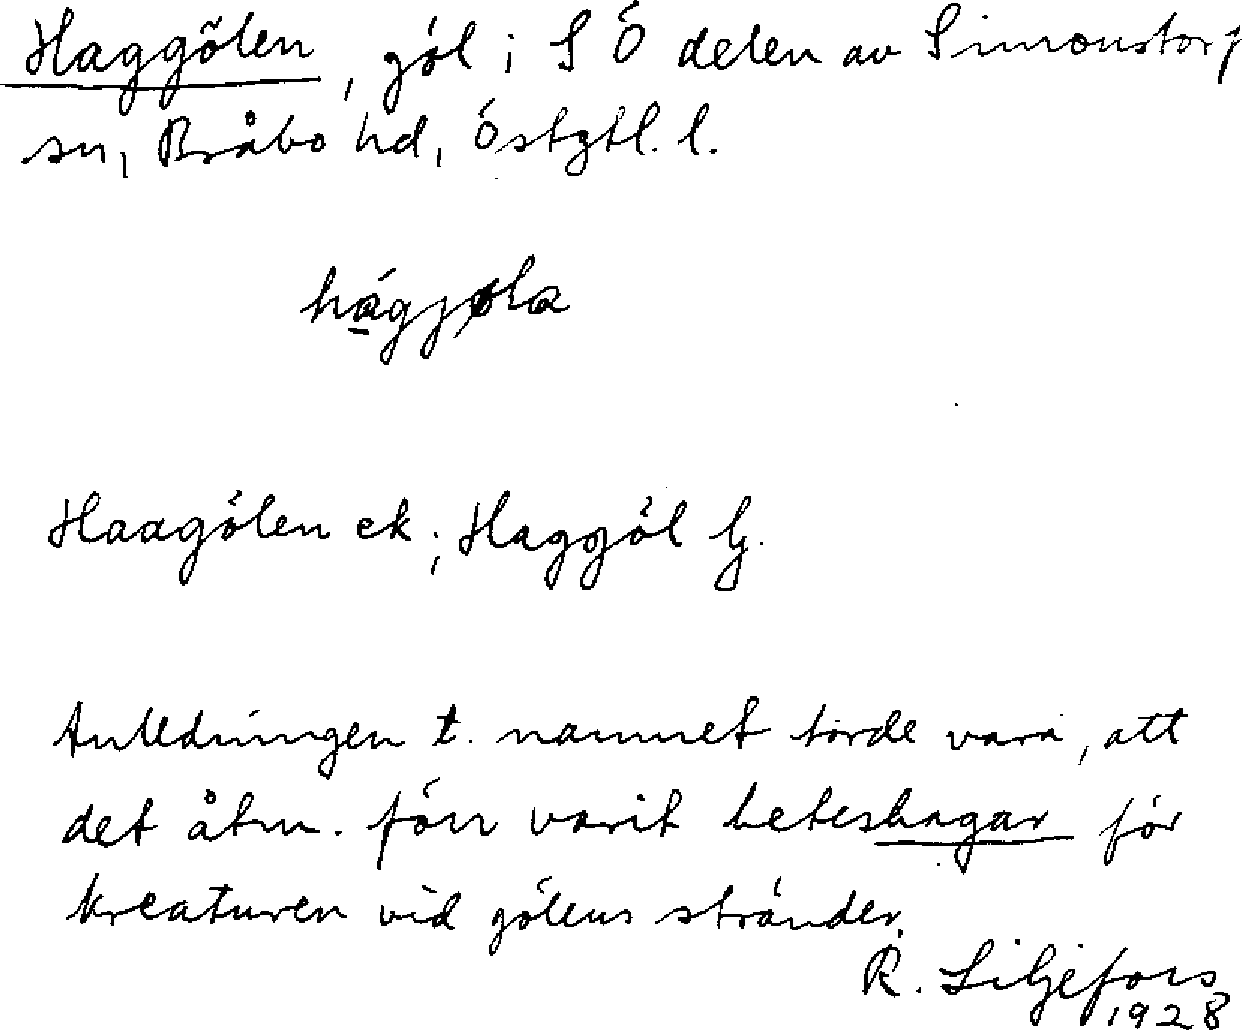 Haggölen, göl i S Ö delen av Simonstorp
sn, Bråbo hd, Östgtl. l.
hágjøla
Haagölen ek; Haggöl lj.
Anledningen t. namnet torde vara, att
det åtm. förr varit beteshagar för
kreaturen vid gölens stränder.
R. Liljefors
1928